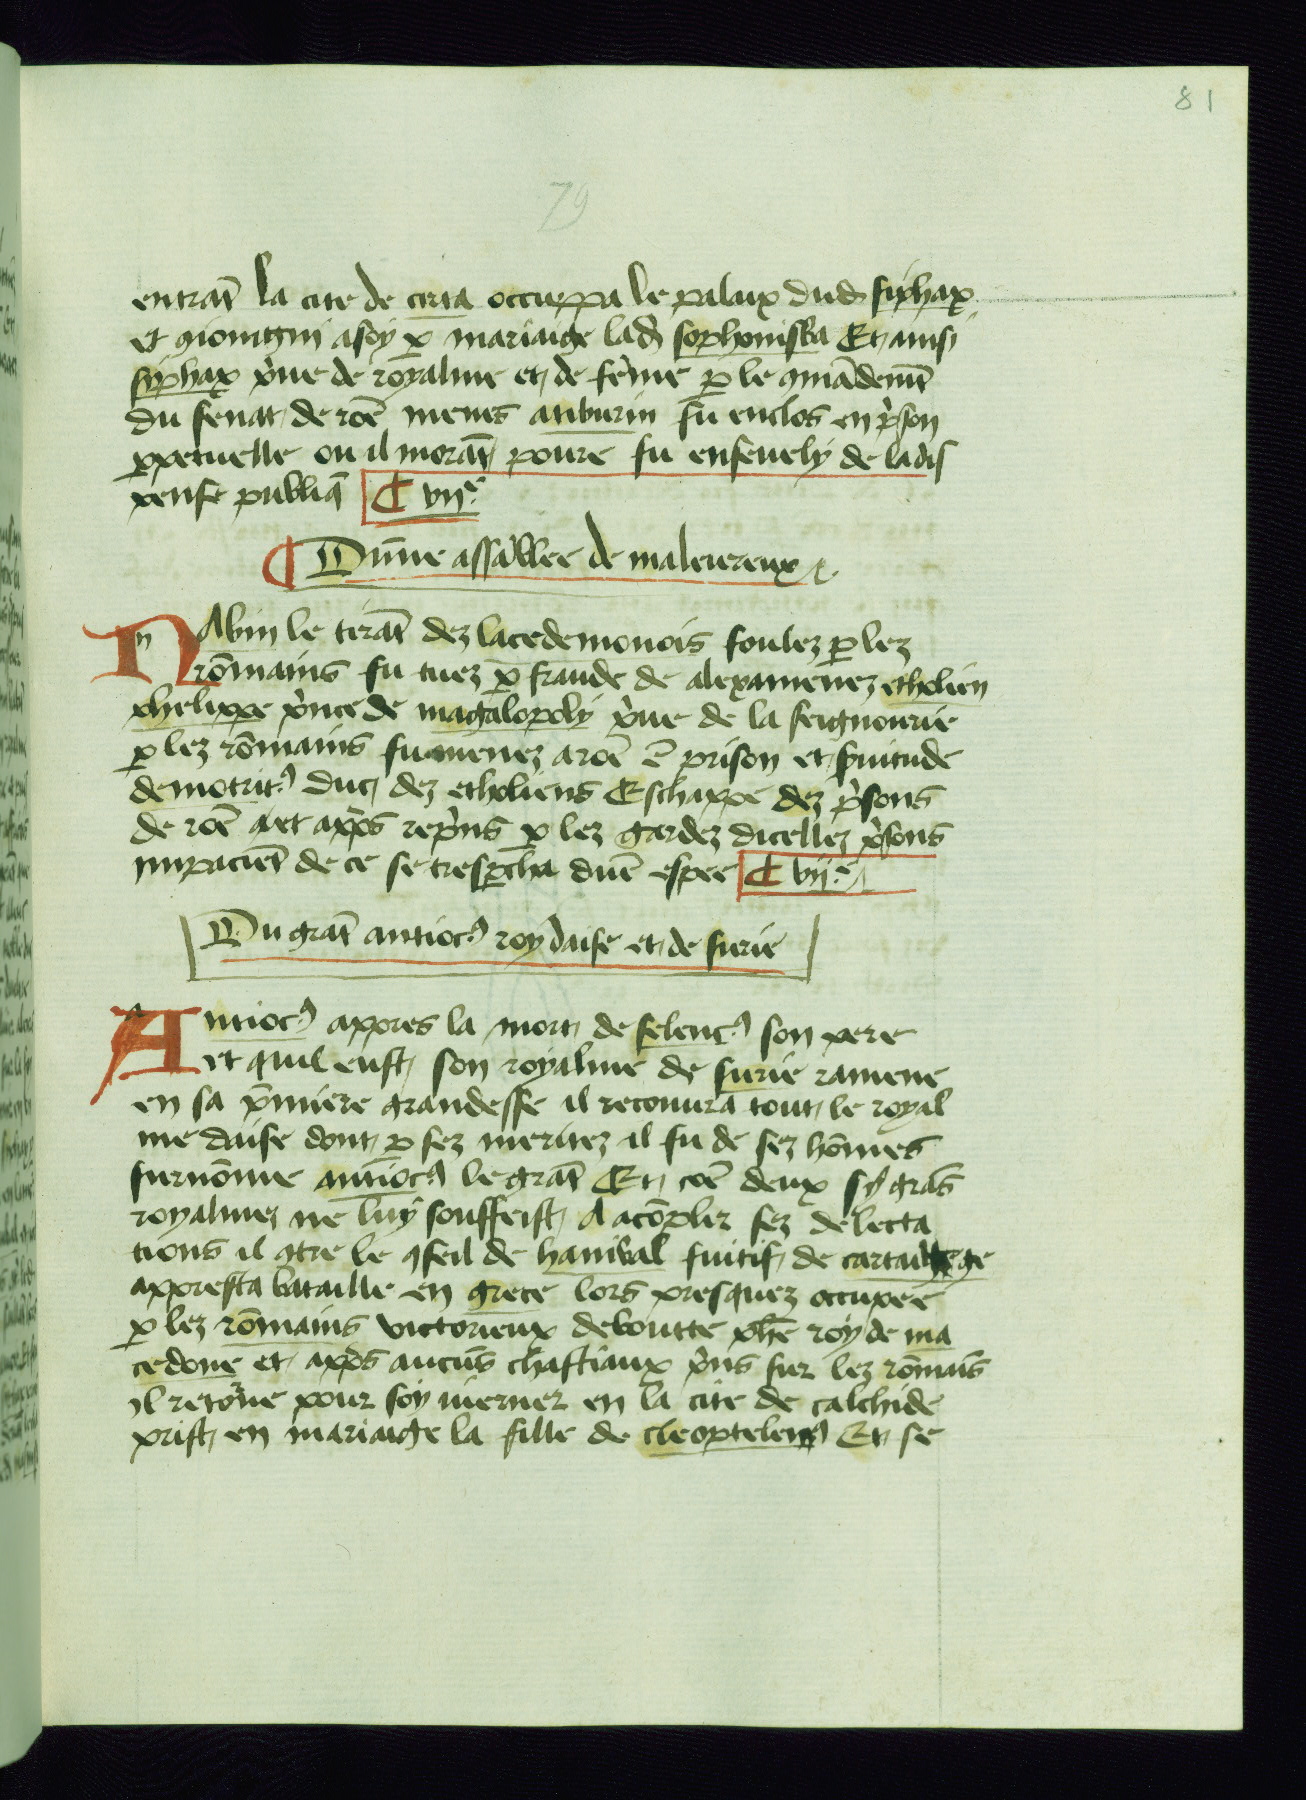 81
79
entrãt la cite de cirta occuppa le palaix dud siphax
et gioingni a soy p mariaige lad sophonisba Et ainsi
siphax p̃ue de royalme et de fẽme p le gmãdemẽt
du senat de rõe menes a tiburin fu enclos en p̃son
ppetuelle ou il morãt poure fu ensevely de la dis
pense publiq̃ C vııᵉ
Dũne assãblee de maleureux
NAbin le tirãt dez lacedemonois foulez p lez
rõmains fu tuez p fraude de alexamenez etholien
phelippe p̃nce de magalopoly p̃ue de la seignourie
p lez rõmains fu menez a rõe ẽ prison et s̃uitude
demotrit⁹ duc dez etholiens Eschappe dez p̃sons
de rõe et aps̃ rep̃ns p lez gardez dicellez p̃sons
impaciẽt de ce se tresp̃cha dunẽ espee C viijᵉ
Du grãt antioc⁹ roy daise et de surie
Antioc⁹ appres la mort de seleuc⁹ son pere
et quil eust son royalme de surie ramene
en sa p̃miere grandesse il recouura tout le royal
me daise dont p sez meritez il fu de sez hõmes
surnõme antioc⁹ le grãt Et cõe deux sy grãs
royalmez ne luy souffeist A acõplir sez delecta
tions il gtre le gseil de hanibal fuitif de cartaige
appresta bataille en grece lors presquez occupee
p lez rõmains victorieux deboutte phẽ roy de ma
cedone et aps̃ aucũs chastiaux p̃ns sur lez rõmaĩs
il retõrne pour soy iuerner en la cite de calchide
prist en mariaige la fille de cleoptelem⁹ Et se